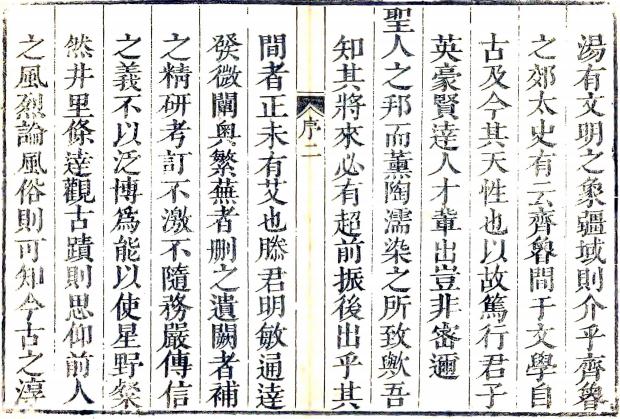 湯有文明之象疆域則介乎齊魯
之郊太史有云齊魯間于文學自
古及今其天性也以故篤行君子
英豪賢達人才輩出豈非密邇
聖人之邦而薰陶濡染之所致歟吾
知其將來必有超前振後出乎其
序二
間者正未有艾也滕君明敏通達
發微闡奥繁蕪者刪之遺闕者補
之精研考訂不激不隨務嚴傳信
之義不以泛博為能以使星野燦
然井里條達觀古蹟則思仰前人
之風烈論風俗則可知今古之淳